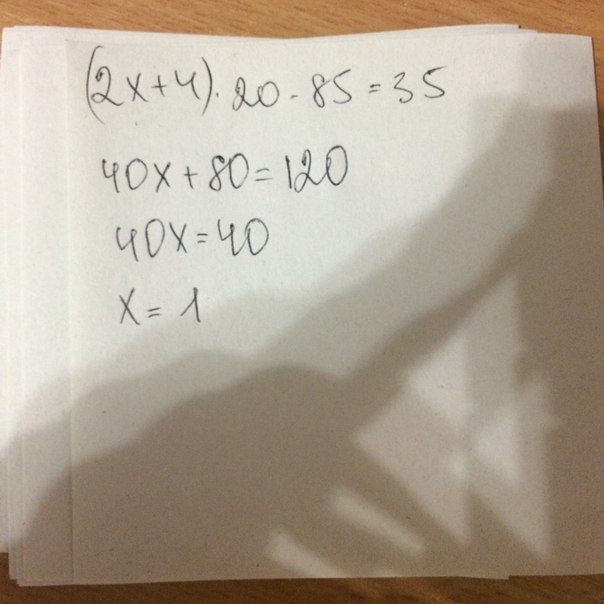 (2x+4)·20-85=35
40x+80=120
40x=40
x=1